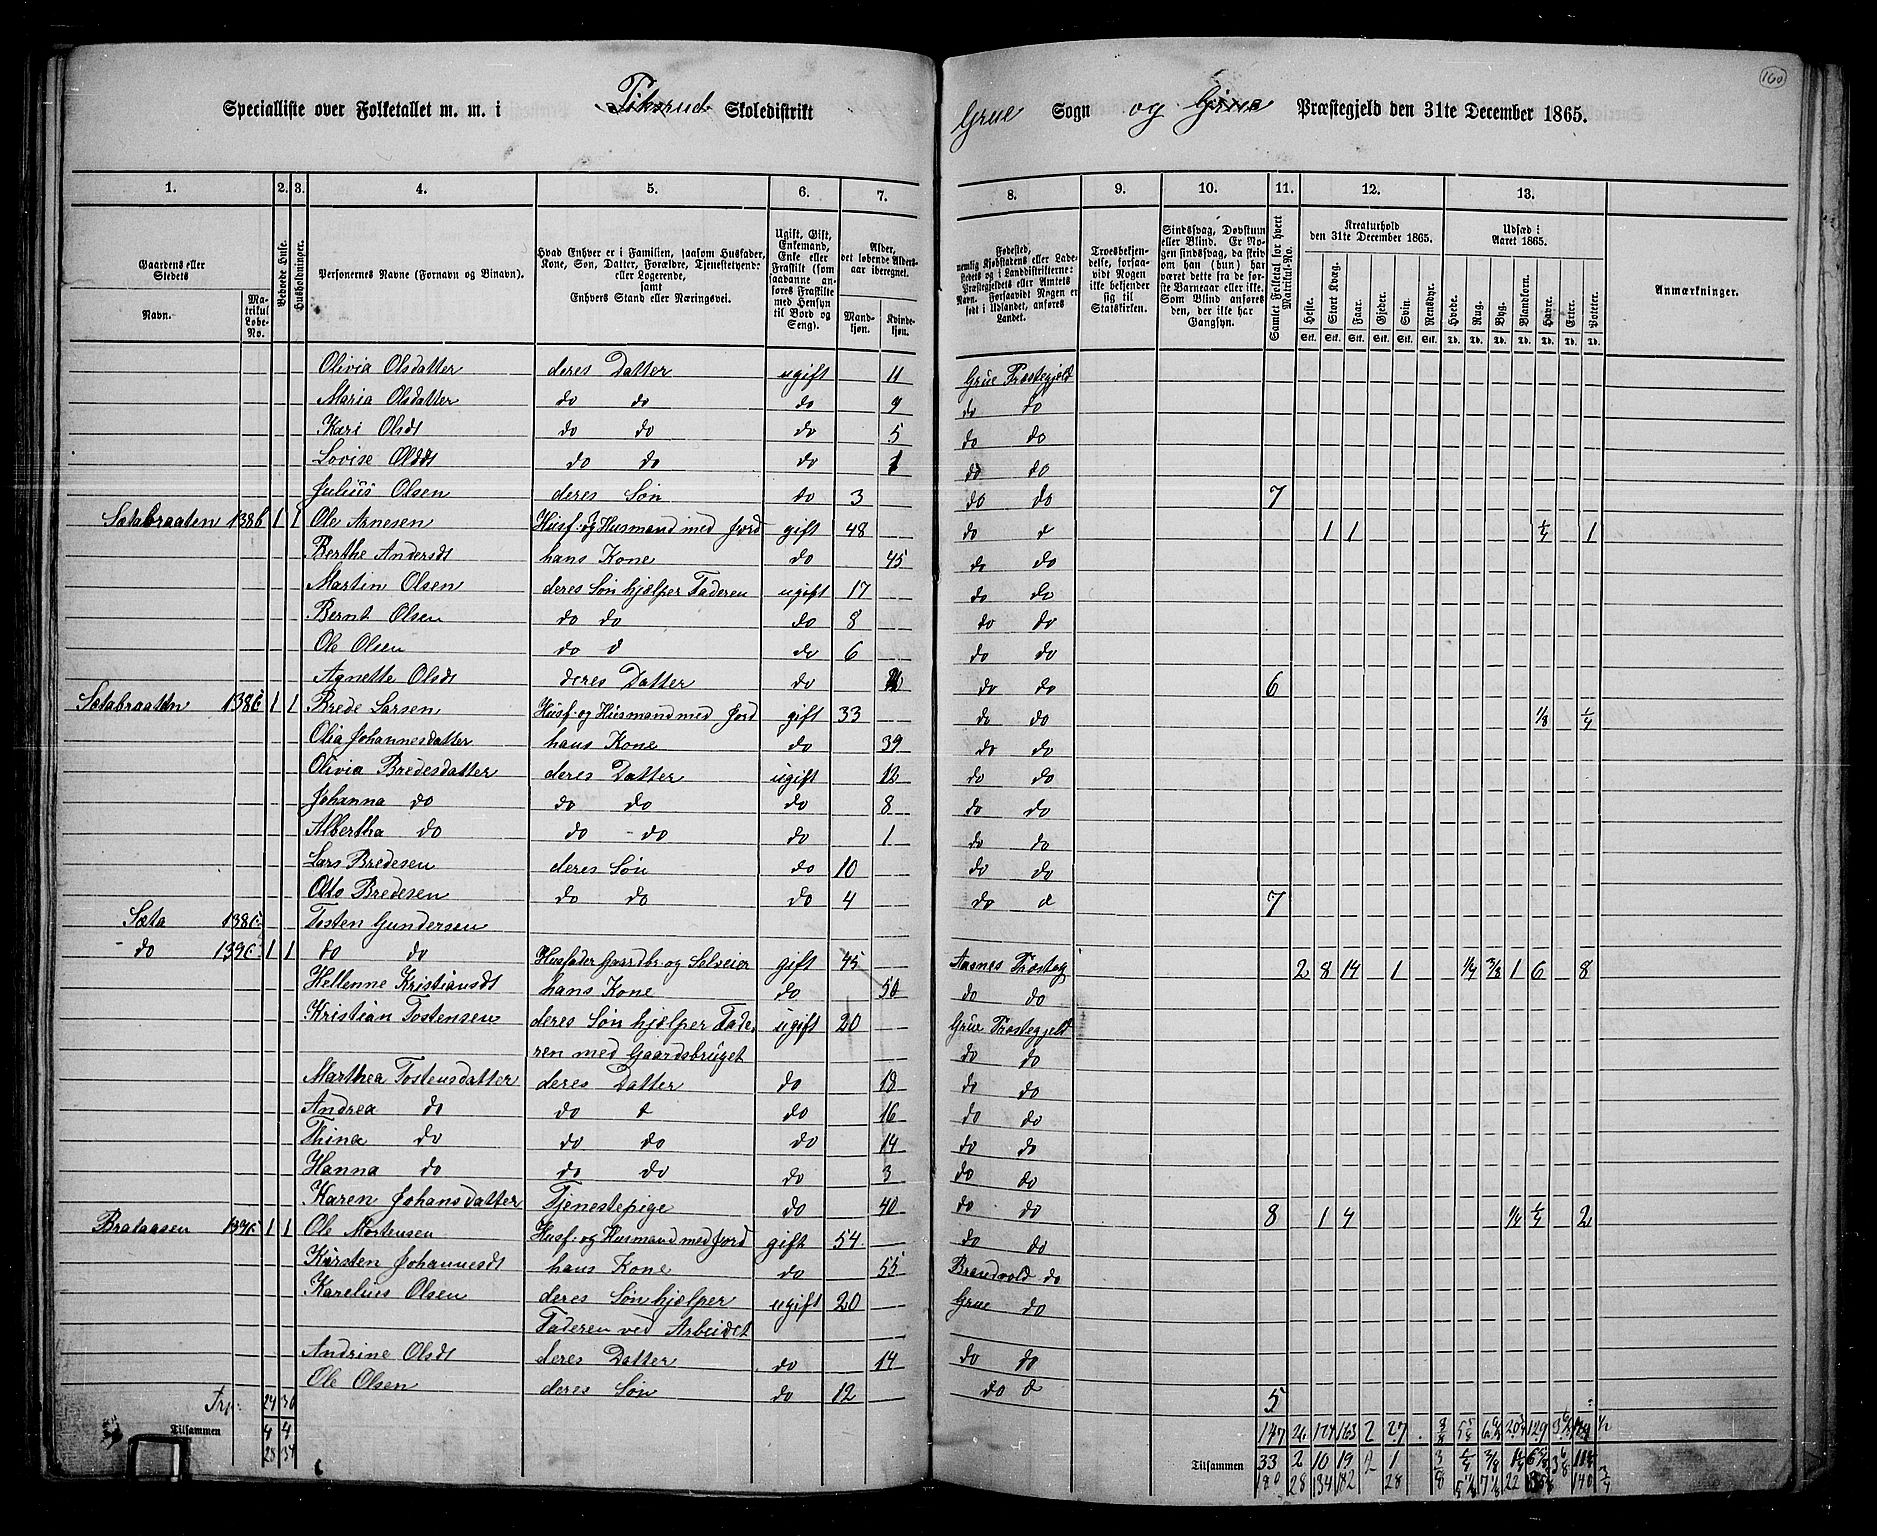 160
Specialliste over Folketallet m. m. i Skoledistrikt Grue Sogn og Grue Præstegjeld den 31te December 1865.
1. 2. 3. 4. 5. 6. 7. 8. 9. 10. 11. 12. 13.
Gaardens eller Stedets Navn. Matrikul Løbe-No.
Beboede Huse.
Husholdninger.
Personernes Navne (Fornavn og Binavn).
Hvad Enhver er i Familien, saasom Husfader, Kone, Søn, Datter, Forældre, Tjenestetyende eller Logerende, samt Enhvers Stand eller Næringsvei.
Ugift, Gift, Enkemand, Enke eller Fraskilt (som saadanne anføres Fraskilte med Hensyn til Bord og Seng).
Alder, det løbende Aldersaar iberegnet. Mandkjøn. Kvindekjøn.
Fødested, nemlig Kjøbstadens eller Ladestedets og i Landdistrikterne: Præstegjeldets eller Amtets Navn. Forsaavidt Nogen er født i Udlandet, anføres Landet.
Troesbekjendelse, forsaavidt Nogen ikke bekjender sig til Statskirken.
Sindssvag, Døvstum eller Blind. Er Nogen sindssvag, da skriv om han (hun) har været dette fra de første Barneaar eller ikke. Som Blind anføres den, der ikke har Gangsyn.
Samlet Folketal for hvert Matrikul-No.
Kreaturhold den 31te December 1865. Heste. Stort Kvæg. Faar. Gjeder. Svin. Rensdyr.
Udsæd i Aaret 1865. Hvede. Rug. Byg. Blandkorn. Havre. Erter. Poteter.
Anmærkninger.
Stk. Stk. Stk. Stk. Stk. Stk. Td. Td. Td. Td. Td. Td. Td.
Olivia Olsdatter deres Datter ugift 11 Grue Præstegjeld
Maria Olsdatter do do do 9 do do
Kari Olsdt do do do 5 do do
Lovise Olsdt do do do do do
Julius Olsen deres Søn do 3 do do 7
Sætabraaten 138 1 1 Ole Arnesen Husf. og Husmand med Jord gift 48 do d 1 1 1
Berthe Andersdt hans Kone do 45 do do
Martin Olsen deres Søn hjælper Faderen ugift 17 do do
Bernt Olsen do do do 8 do do
Ole Olsen do d do 6 do do
Agnette Olsdt deres Datter do do do 6
Sætabraaten 138 1 1 Brede Larsen Husf. og Husmand med Jord gift 33 do do 1/8 1/4
Olia Johannesdatter hans Kone do 39 do do
Olivia Bredesdatter deres Datter ugift 12 do do
Johanna do do do do 8 do do
Albertha do do do do 1 do do
Lars Bredesen deres Søn do 10 do do
Otto Bredesen do do do 4 do d 7
Sæta 138 Tosten Gundersen
do 139 1 1 do do Husfader Gaardbr. og Selveier gift 45 Aasnes Præsteg 2 8 14 1 1/4 3/8 1 6 8
Hellenne Kristiansdt hans Kone do 50 do do
Kristian Tostensen deres Søn hjælper Fade- ugift 20 Grue Præstegjeld
ren med Gaardsbruget do do
Marthea Tostensdatter deres Datter do 18 do do
Andrea do do d do 16 do do
Thina do do do do 14 do do
Hanna do do do do 3 do do
Karen Johansdatter Tjenestepige do 40 do do 8 1 4 1/4 2
Brataasen 139 1 1 Ole Mortensen Husf. og Husmand med Jord gift 54 do do
Kirsten Johannesdt hans Kone do 55 Brandvold do
Karelius Olsen deres Søn hjælper ugift 20 Grue do
Faderen ved Arbeidet
Andrine Olsdt deres Datter do 14 do do
Ole Olsen deres Søn do 12 do d 5
24 30 147 26 2 27
Tilsammen 4 4 Tilsammen 33 2 10 19 1
28 34 180 28 134 182 28 140